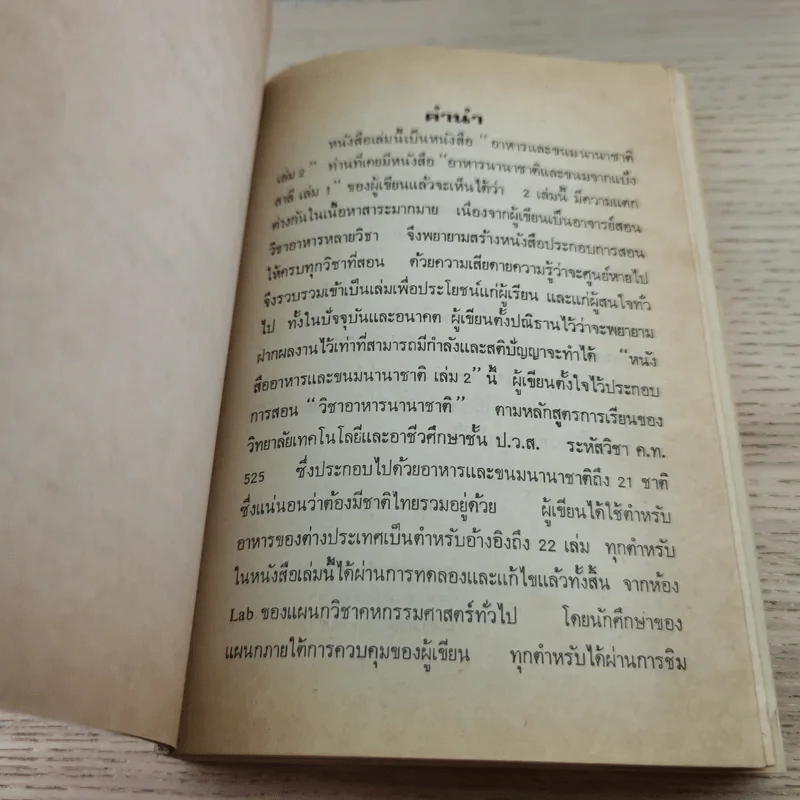 คำนำ
หนังสือเล่มนี้เป็นหนังสือ "อาหารและขนมนานาชาติ
เล่ม 2" ท่านที่เคยมีหนังสือ "อาหารนานาชาติและขนมจากแป้ง
สาลี เล่ม 1" ของผู้เขียนแล้วจะเห็นได้ว่า 2 เล่มนี้ มีความแตก
ต่างกันในเนื้อหาสาระมากมาย เนื่องจากผู้เขียนเป็นอาจารย์สอน
วิชาอาหารหลายวิชา จึงพยายามสร้างหนังสือประกอบการสอน
ให้ครบทุกวิชาที่สอน ด้วยความเสียดายความรู้ว่าจะศูนย์หายไป
จึงรวบรวมเข้าเป็นเล่มเพื่อประโยชน์แก่ผู้เรียน และแก่ผู้สนใจทั่ว
ไป ทั้งในปัจจุบันและอนาคต ผู้เขียนตั้งปณิธานไว้ว่าจะพยายาม
ฝากผลงานไว้เท่าที่สามารถมีกำลังและสติปัญญาจะทำได้ "หนัง
สืออาหารและขนมนานาชาติ เล่ม 2" นี้ ผู้เขียนตั้งใจไว้ประกอบ
การสอน "วิชาอาหารนานาชาติ" ตามหลักสูตรการเรียนของ
วิทยาลัยเทคโนโลยีและอาชีวศึกษาชั้น ป.ว.ส. ระหัสวิชา ค.ท.
525 ซึ่งประกอบไปด้วยอาหารและขนมนานาชาติถึง 21 ชาติ
ซึ่งแน่นอนว่าต้องมีชาติไทยรวมอยู่ด้วย ผู้เขียนได้ใช้ตำหรับ
อาหารของต่างประเทศเป็นตำหรับอ้างอิงถึง 22 เล่ม ทุกตำหรับ
ในหนังสือเล่มนี้ได้ผ่านการทดลองและแก้ไขแล้วทั้งสิ้น จากห้อง
Lab ของแผนกวิชาคหกรรมศาสตร์ทั่วไป โดยนักศึกษาของ
แผนกภายใต้การควบคุมของผู้เขียน ทุกตำหรับได้ผ่านการชิม